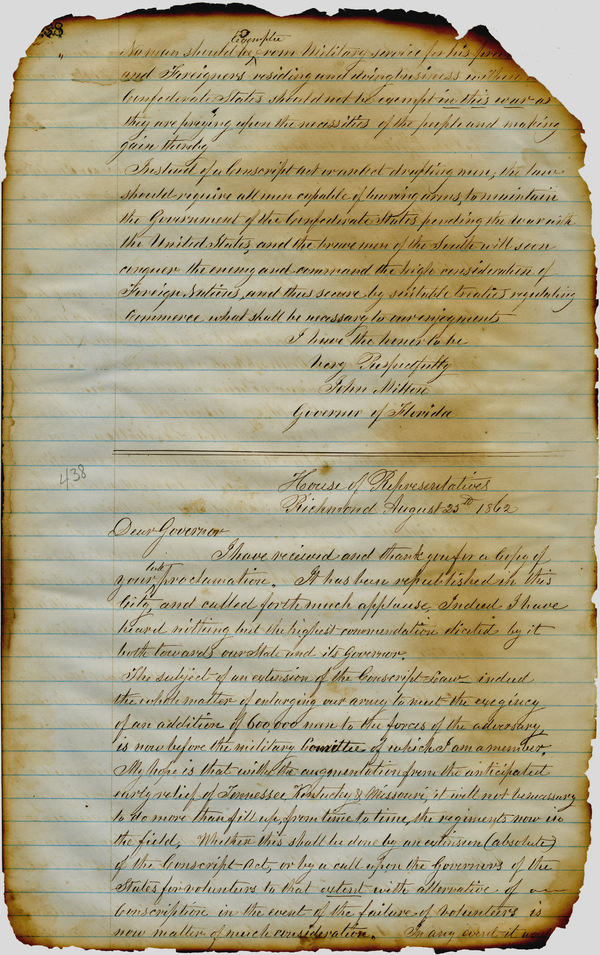 Exempted
No man should be from Military service for his pro
and Foreigners residing and doing business within
Confederate States should not be exempt in this war as
they are preying upon the necessities of the people and making
gain thereby
Instead of a Conscript act or an act drafting men, the law
should require all men capable of bearing arms, to maintain
the Government of the Confederate States pending the war with
the United States, and the brave men of the South will soon
conquer the enemy and command the high consideration of
Foreign Nations, and thus secure by suitable treaties regulating
Commerce what shall be necessary to our enjoyments
I have the honor to be
Very Respectfully
John Milton
Governor of Florida
438
House of Representatives
Richmond August 25th 1862
Dear Governor
I have received and thank you for a Copy of
your late proclamation. It has been republished in this
City, and called forth much applause, Indeed I have
heard nothing but the highest commendation elicited by it
both towards our State and its Governor.
The subject of an extension of the Conscript Law indeed
the whole matter of enlarging our army to meet the exegincy
of an addition of 600,000 men to the forces of the adversary
is now before the military Comittee of which I am a member.
My hope is that with the augmentation from the anticipated
early relief of Tennessee Kentucky & Missouri, it will not be necessary
to do more than fill up, from time to time, the regiments now in
the field. Whether this shall be done by an extension (absolute)
of the Conscript Act, or by a call upon the Governors of the
States for volunteers to that extent with alternative of
Conscription in the event of the failure of volunteers is
now matter of much consideration. In any event it